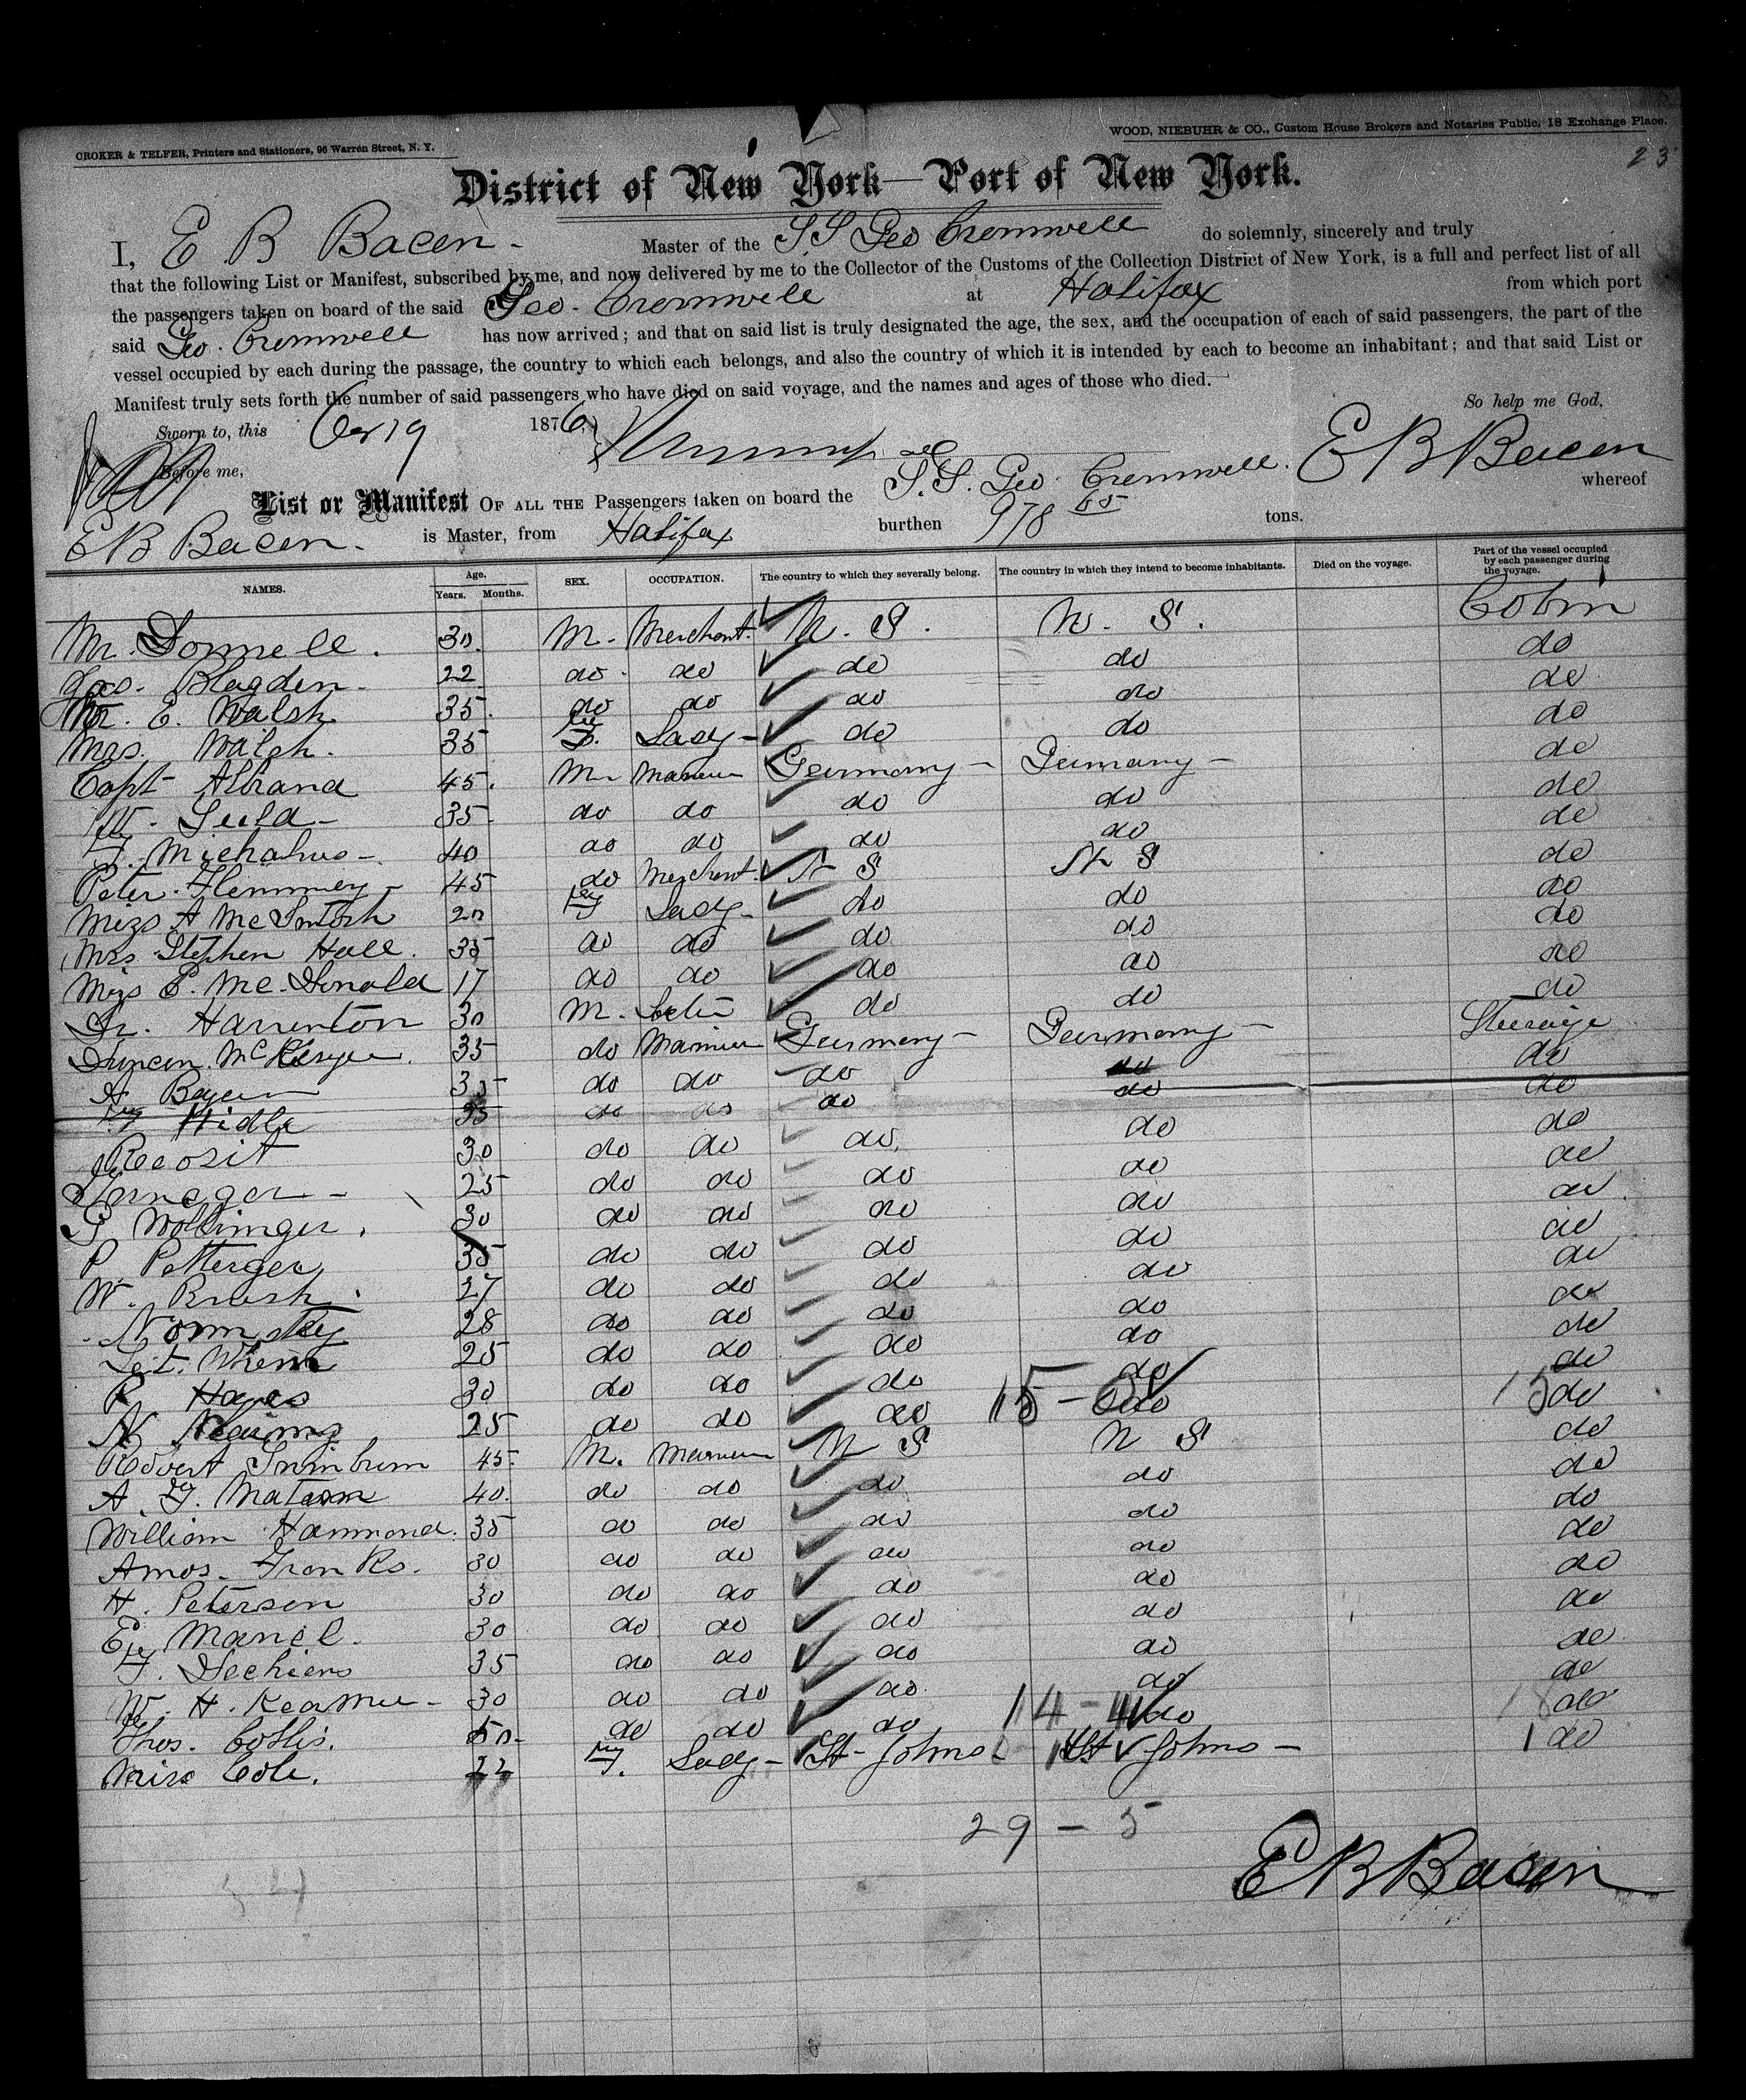 CROKER & TELFER, Printers and Stationers, 96 Warren Street, N. Y.
WOOD, NIEBUHR & CO., Custom House Brokers and Notaries Public, 18 Exchange Place.
23
District of New York—Port of New York.
I, E B Bacon - Master of the S S Geo Cromwell do solemnly, sincerely and truly
that the following List or Manifest, subscribed by me, and now delivered by me to the Collector of the Customs of the Collection District of New York, is a full and perfect list of all
the passengers taken on board of the said Geo. Cromwell at Halifax from which port
said Geo. Cromwell has now arrived; and that on said list is truly designated the age, the sex, and the occupation of each of said passengers, the part of the
vessel occupied by each during the passage, the country to which each belongs, and also the country of which it is intended by each to become an inhabitant; and that said List or
Manifest truly sets forth the number of said passengers who have died on said voyage, and the names and ages of those who died.
So help me God,
Sworn to, this 19 1876,
Before me, E B Bacon
List or Manifest OF ALL THE Passengers taken on board the S.S. Geo. Cromwell. whereof
E B Bacon. is Master, from Halifax burthen 978 65 tons.
NAMES. Age. Years. Months. SEX. OCCUPATION. The country to which they severally belong. The country in which they intend to become inhabitants. Died on the voyage. Part of the vessel occupied by each passenger during the voyage.
Mr. Donnell. 30. M. Merchant. N. S. N. S. Cabin
Geo. Blagden 22 do do do do do
E. Walsh 35. do do do do do
Mrs. Walsh. 35 F. Lady do do do
Capt Albrand 45. M. Mariner Germany Germany do
W. 35 do do do do do
F. 40 do do do do do
Peter Flemmey 45 do Merchant. N S N S do
Miss A McIntosh 20 F Lady do do do
Mrs Stephen Hall. 35 do do do do do
Miss E. McDonald 17 do do do do do
Dr. Harrenton 30 M. do do do
Duncan 35 do Mariner Germany Germany Steerage
A Bayer 35 do do do do do
F Hidle 25 do do do do do
30 do do do do do
25 do do do do do
G Wollinger. 30 do do do do do
P. Petterger 35 do do do do do
W. Brush. 27 do do do do do
28 do do do do do
25 do do do do do
R Hayes 30 do do do do do
N 25 do do do 15 - do 15 do
Robert 45. M. Mariner N S N S do
A. F. Matson 40. do do do do do
William Hammond. 35 do do do do do
Amos. Franks. 30 do do do do do
H. Peterson 30 do do do do do
E. Manel. 30 do do do do do
F. 35 do do do do do
W. H. 30 do do do do do
Thos. Collis. 50. do do do 14 - 4 do 18 do
Miss Cole. 22 F. Lady St Johns 1 St Johns 1 do
29 - 5
E B Bacon